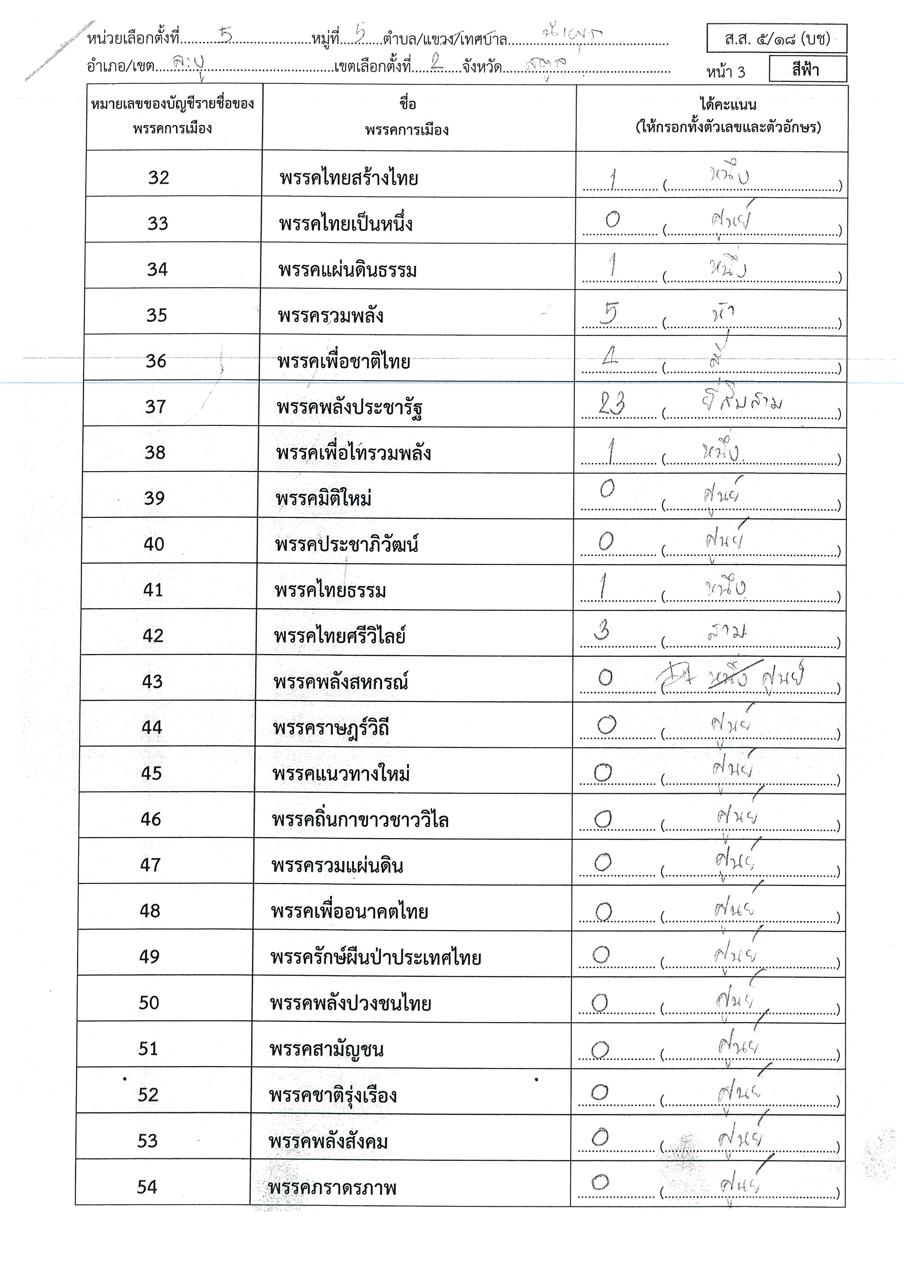 หน่วยเลือกตั้งที่ 5 หมู่ที่ 5 ตำบล/แขวง/เทศบาล น้ำผุด ส.ส. ๕/๑๘ (บช)
อำเภอ/เขต ละงู เขตเลือกตั้งที่ 2 จังหวัด สตูล หน้า 3 สีฟ้า
หมายเลขของบัญชีรายชื่อของ ชื่อ ได้คะแนน
พรรคการเมือง พรรคการเมือง (ให้กรอกทั้งตัวเลขและตัวอักษร)
32 พรรคไทยสร้างไทย 1 (หนึ่ง)
33 พรรคไทยเป็นหนึ่ง 0 (ศูนย์)
34 พรรคแผ่นดินธรรม 1 (หนึ่ง)
35 พรรครวมพลัง 5 (ห้า)
36 พรรคเพื่อชาติไทย 4 (สี่)
37 พรรคพลังประชารัฐ 23 (ยี่สิบสาม)
38 พรรคเพื่อไทรวมพลัง 1 (หนึ่ง)
39 พรรคมิติใหม่ 0 (ศูนย์)
40 พรรคประชาภิวัฒน์ 0 (ศูนย์)
41 พรรคไทยธรรม 1 (หนึ่ง)
42 พรรคไทยศรีวิไลย์ 3 (สาม)
43 พรรคพลังสหกรณ์ 0 (หนึ่ง ศูนย์)
44 พรรคราษฎร์วิถี 0 (ศูนย์)
45 พรรคแนวทางใหม่ 0 (ศูนย์)
46 พรรคถิ่นกาขาวชาววิไล 0 (ศูนย์)
47 พรรครวมแผ่นดิน 0 (ศูนย์)
48 พรรคเพื่ออนาคตไทย 0 (ศูนย์)
49 พรรครักษ์ผืนป่าประเทศไทย 0 (ศูนย์)
50 พรรคพลังปวงชนไทย 0 (ศูนย์)
51 พรรคสามัญชน 0 (ศูนย์)
52 พรรคชาติรุ่งเรือง 0 (ศูนย์)
53 พรรคพลังสังคม 0 (ศูนย์)
54 พรรคภราดรภาพ 0 (ศูนย์)